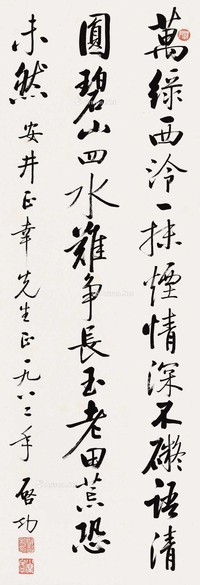 萬綠西泠一抹煙情深不礙語清
圓碧山四水難爭長玉老田荒恐
未然 安井正幸先生正一九八二年 啓功